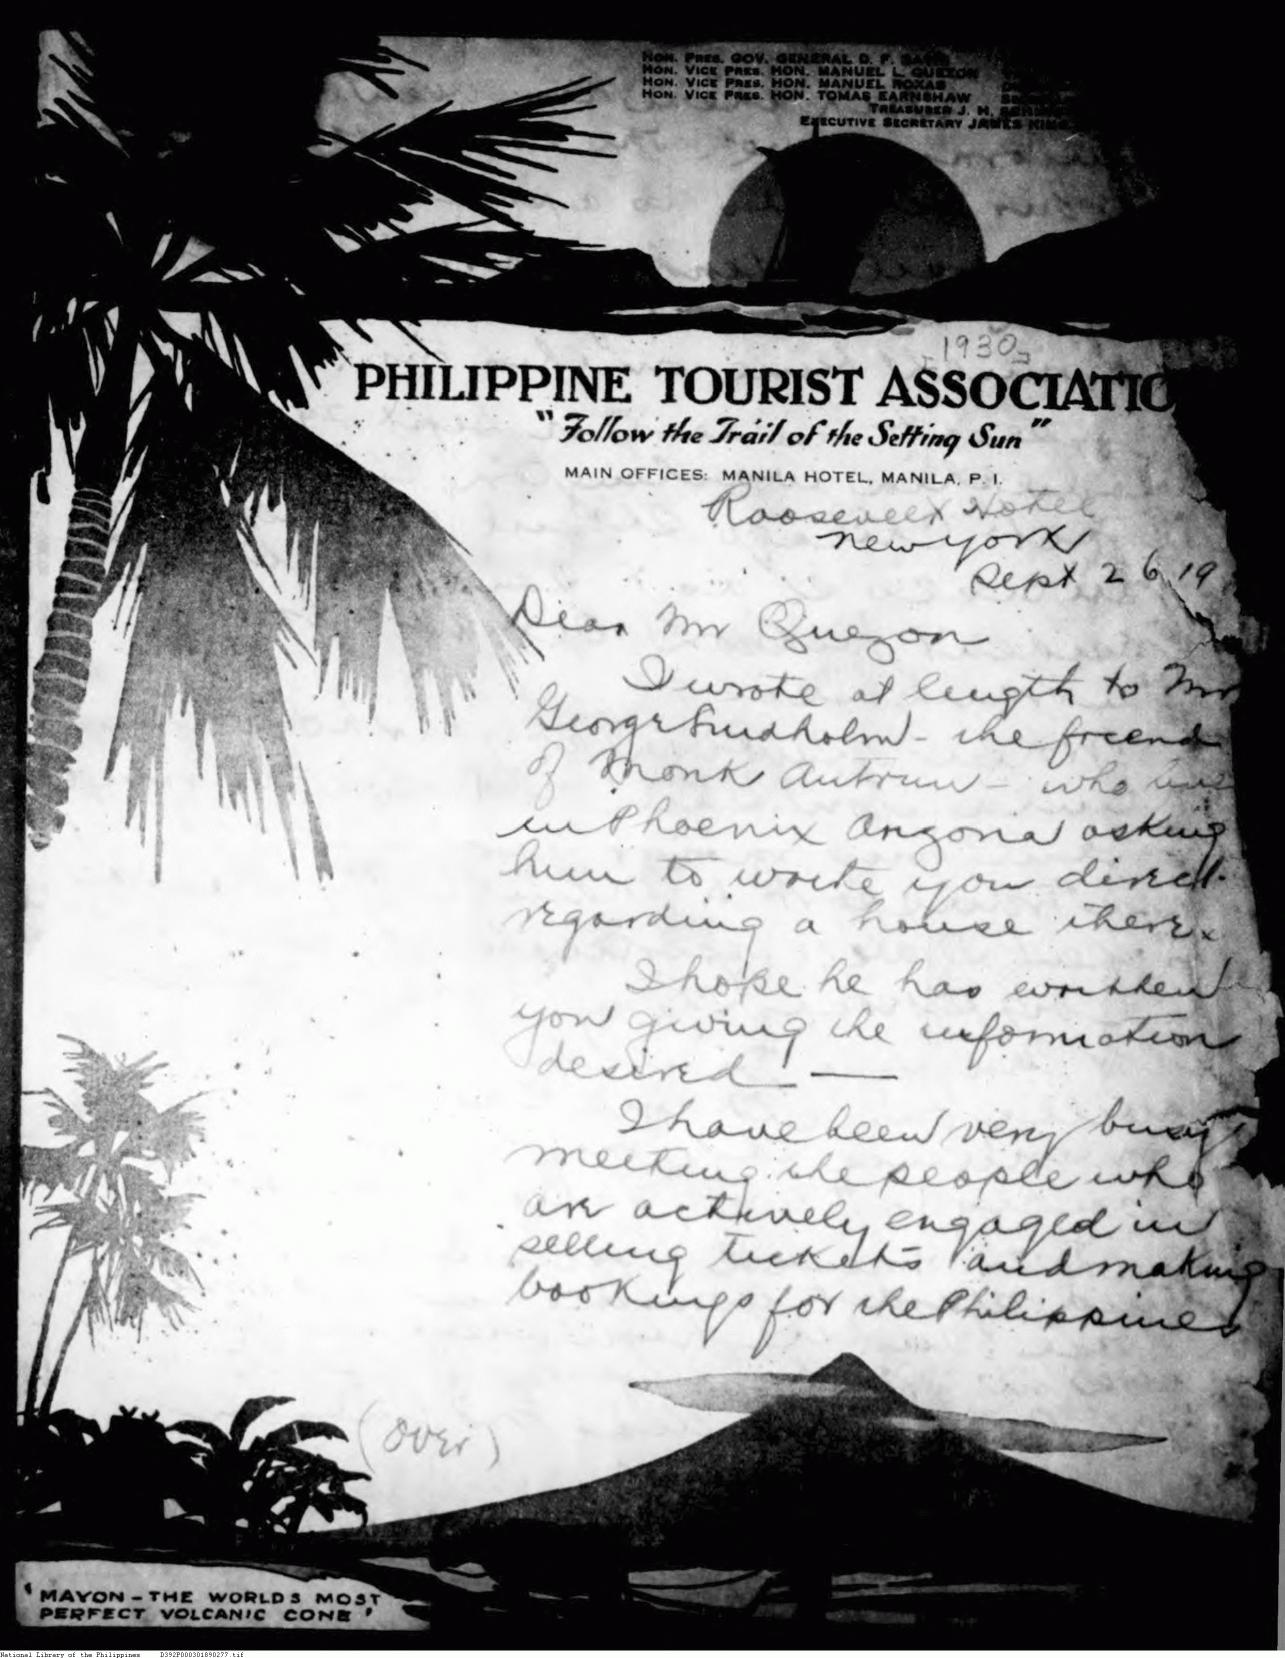 HON. PRES. GOV. GENERAL D. F. DAVIS
HON. VICE PRES. HON. MANUEL L. QUEZON
HON. VICE PRES. HON. MANUEL ROXAS
HON. VICE PRES. HON. TOMAS EARNSHAW
TREASURER J. H.
EXECUTIVE SECRETARY JAMES KING
-1930-
PHILIPPINE TOURIST ASSOCIATIO
"Follow the Trail of the Setting Sun"
MAIN OFFICES: MANILA HOTEL, MANILA, P. I.
Roosevelt Hotel
New York
Sept 26, 19
Dear Mr Quezon
I wrote at length to Mr
George - the friend
of Monk - who
in Phoenix Arizona asking
him to write you direct
regarding a house there.
I hope he has written
you giving the information
desired —
I have been very busy
meeting the people who
are actively engaged in
selling tickets and making
bookings for the Philippines
(over)
'MAYON - THE WORLDS MOST
PERFECT VOLCANIC CONE'
National Library of the Philippines D392P000301890277.tif